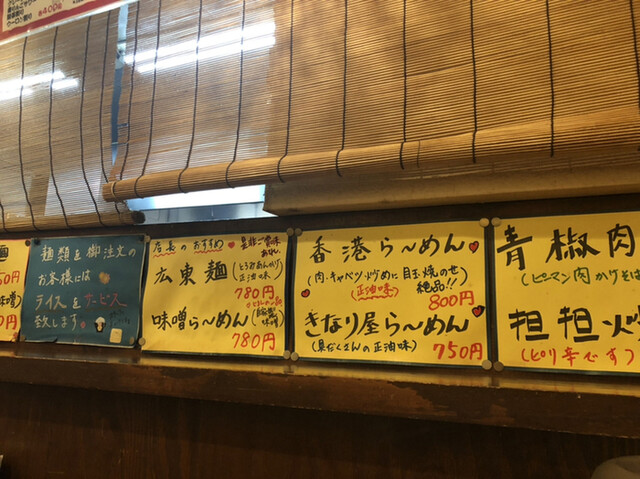 麺類を御注文の
お客様には
ライスをサービス
致します
店長のおすすめ
広東麺
(とうふあんかけ
正油味)
780円
味噌ら〜めん
780円
香港ら〜めん
(肉・キャベツ・炒めに目玉焼のせ
正油味)
絶品!!
800円
きなり屋ら〜めん
(具だくさんの正油味)
750円
青椒肉
(ピーマン肉かけそ
担担火
(ピリ辛です)